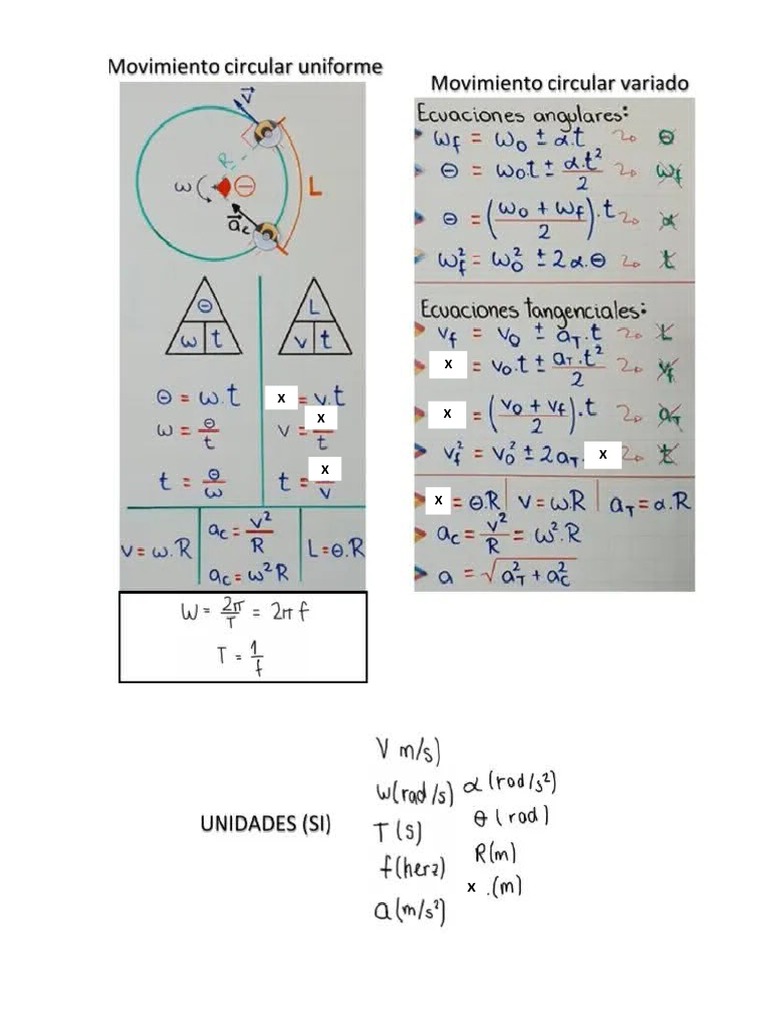 Movimiento circular uniforme
V
R
ω
θ
L
ac
θ
ω t
L
v t
θ = ω.t
x = v.t
ω = θ/t
v = x/t
t = θ/ω
t = x/v
v = ω.R
ac = v²/R
ac = ω²R
L = θ.R
W = 2π/T = 2π f
T = 1/f
Movimiento circular variado
Ecuaciones angulares:
ωf = ωo ± α.t θ
θ = ωo.t ± α.t²/2 ωf
θ = (ωo + ωf/2).t α
ωf² = ωo² ± 2α.θ t
Ecuaciones tangenciales:
vf = vo ± aT.t L
x = vo.t ± aT.t²/2 vf
x = (vo + vf/2).t aT
vf² = vo² ± 2aT. x t
x = θ.R v = ω.R aT = α.R
ac = v²/R = ω².R
a = √aT² + ac²
UNIDADES (SI)
V m/s)
W(rad/s)
T (s)
f(herz)
a(m/s²)
α (rad/s²)
θ (rad)
R(m)
x .(m)